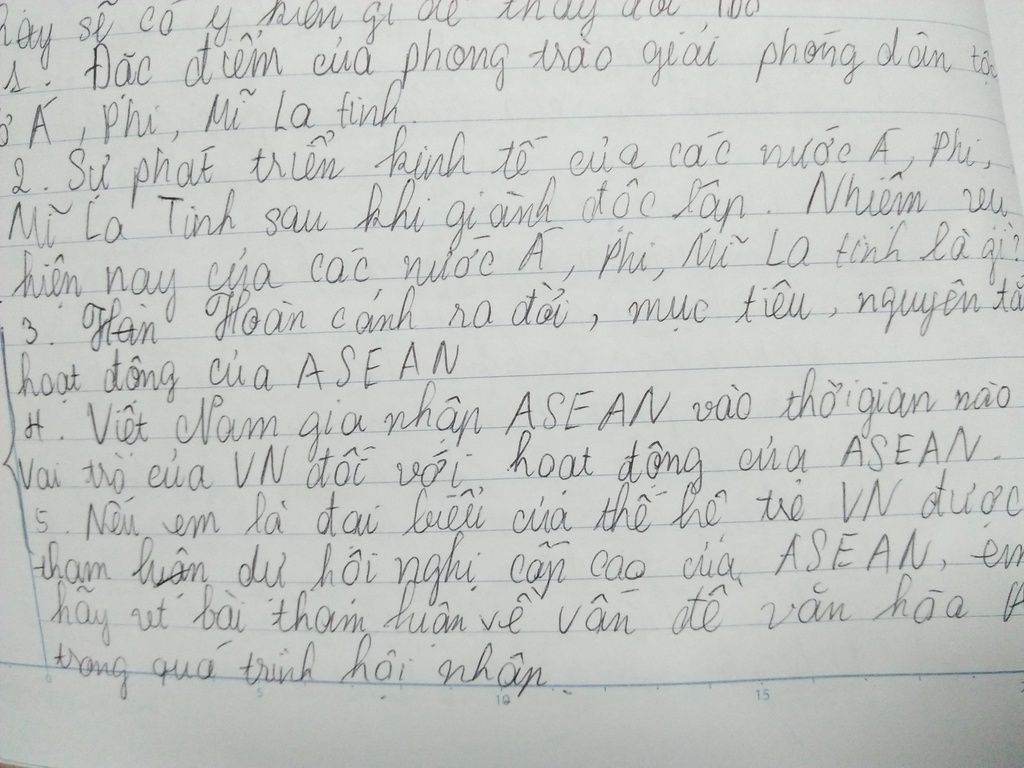 hãy sẽ có ý kiến gì để thay đổi
1. Đặc điểm của phong trào giải phóng dân tộc
ở Á, Phi, Mĩ La tinh.
2. Sự phát triển kinh tế của các nước Á, Phi,
Mĩ La Tinh sau khi giành độc lập. Nhiệm vụ
hiện nay của các nước Á, Phi, Mĩ La tinh là gì?
3. Hoàn cảnh ra đời, mục tiêu, nguyên tắc
hoạt động của ASEAN
4. Việt Nam gia nhập ASEAN vào thời gian nào
Vai trò của VN đối với hoạt động của ASEAN.
5. Nếu em là đại biểu của thế hệ trẻ VN được
tham dự hội nghị cấp cao của ASEAN, em
hãy viết bài tham luận về vấn đề văn hóa
trong quá trình hội nhập.
5 10 15